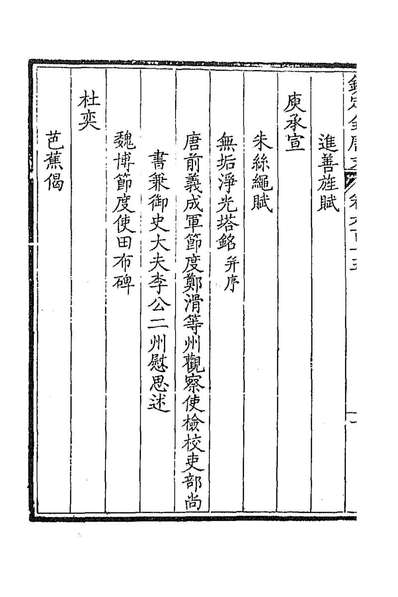 欽定全唐文 卷六百十五
進善旌賦
庾承宣
朱絲繩賦
無垢淨光塔銘 并序
唐前義成軍節度鄭滑等州觀察使檢校吏部尚
書兼御史大夫李公二州慰思述
魏博節度使田布碑
杜奕
芭蕉偈